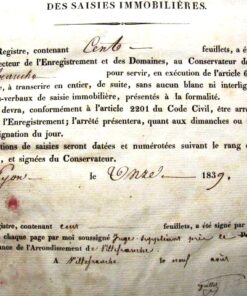 DES SAISIES IMMOBILIÈRES.
Registre, contenant Cent feuillets, a é
cteur de l'Enregistrement et des Domaines, au Conservateur de
pour servir, en exécution de l'article 6
, à transcrire en entier, de suite, sans aucun blanc ni interlig
-verbaux de saisie immobilière, présentés à la formalité.
devra, conformément à l'article 2201 du Code Civil, être arre
l'Enregistrement; l'arrêté présentera, quant aux dimanches ou
signation du jour.
tions de saisies seront datées et numérotées suivant le rang d
, et signées du Conservateur.
Lyon le Onze 1839.
gistre, contenant cent feuillets, a été signé
chaque page par moi soussigné Juge suppléant près le
ance de l'Arrondissement de Villefranche
A Villefranche le neuf août